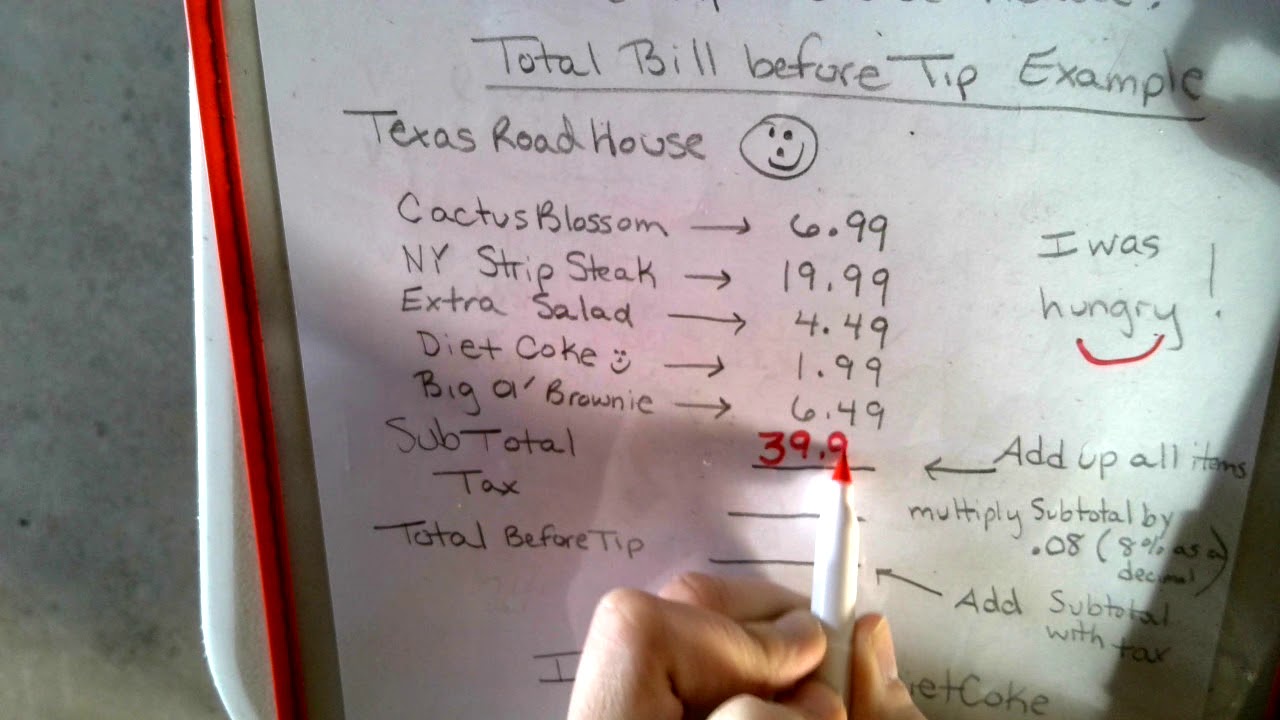 Total Bill before Tip Example
Texas RoadHouse
Cactus Blossom → 6.99
NY Strip Steak → 19.99
Extra Salad → 4.49
Diet Coke → 1.99
Big Ol' Brownie → 6.49
I was
hungry!
SubTotal 39.9
← Add up all items
Tax
multiply Subtotal by
.08 (8% as a
decimal)
Total Before Tip
Add Subtotal
with tax
I
etCoke